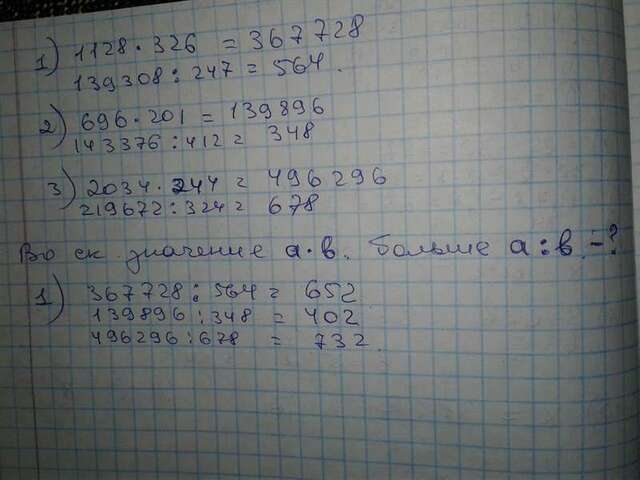 1) 1128 · 326 = 367728
139308 : 247 = 564.
2) 696 · 201 = 139896
143376 : 412 = 348
3) 2034 · 244 = 496296
219672 : 324 = 678
Во ск. значение а · в. больше а : в. - ?
1) 367728 : 564 = 652
139896 : 348 = 402
496296 : 678 = 732.